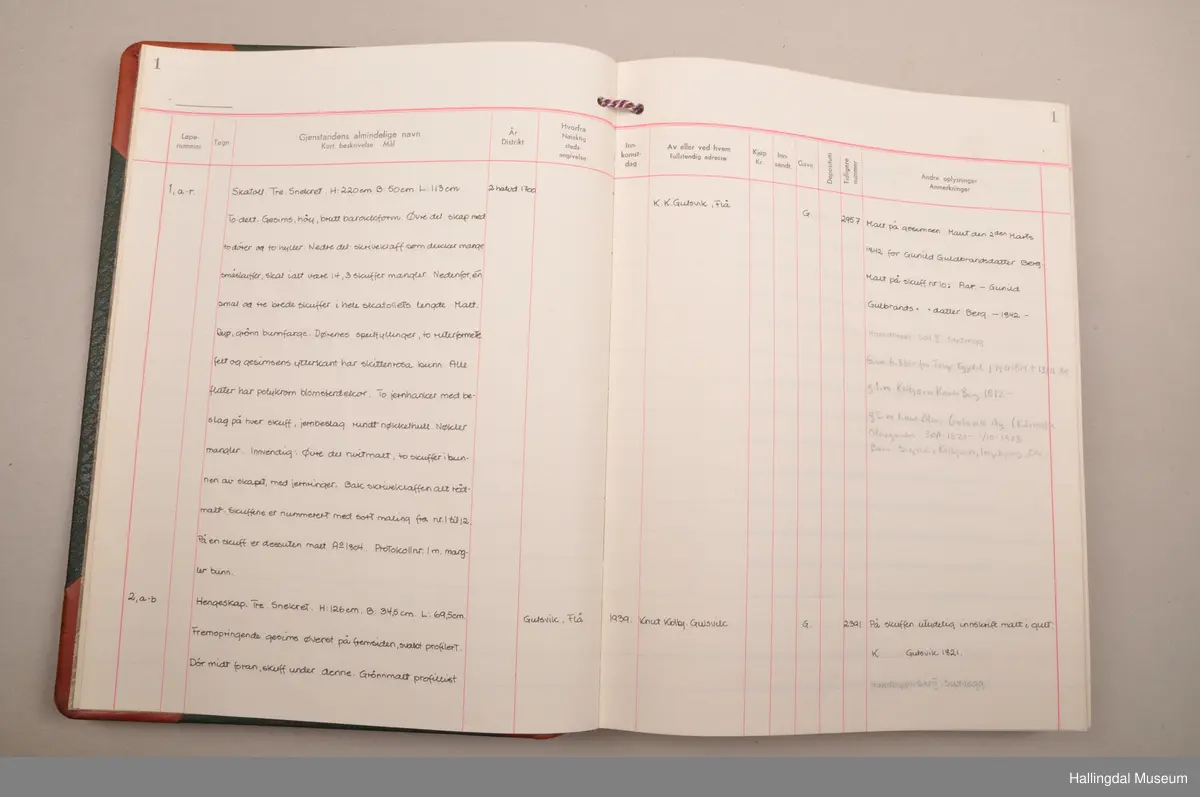 1
1
Løpe-
nummer
Tegn.
Gjenstandens almindelige navn
Kort beskrivelse Mål
År
Distrikt
Hvorfra
Nøiaktig
steds-
angivelse
Inn-
komst-
dag
Av eller ved hvem
fullstendig adresse
Kjøp
Kr.
Inn-
sendt.
Gave.
Depositum
Tidligere
nummer
Andre oplysninger
Anmerkninger
1, a-r.
Skatoll. Tre. Snekret. H: 220cm B: 50cm L: 113 cm.
2 halvd 1700
K.K. Gulsvik, Flå
G.
2957
To delt. Gesims, høy, brutt barokkform. Øvre del skap med
to dører og to hyller. Nedre del: skriveklaff som dekker mange
småskuffer, skal ialt være 14, 3 skuffer mangler. Nedenfor, én
smal og tre brede skuffer i hele skatollets lengde. Malt.
grønn bunnfarge. Dørenes speilfyllinger, to ruterformete
felt og gesimsens ytterkant har skittenrosa bunn. Alle
flater har polykrom blomsterdekor. To jernhanker med be-
slag på hver skuff, jernbeslag rundt nøkkelhull. Nøkler
mangler. Innvendig: Øvre del hvitmalt, to skuffer i bun-
nen av skapet, med jernringer. Bak skriveklaffen alt rød-
malt. Skuffene er nummerert med sort maling fra nr. 1 til 12.
På en skuff er dessuten malt Aº 1804. Protokollnr. 1 m. mang-
ler bunn.
Malt på gesimsen: Malit den 2den Marts
1842 for Gunild Guldbrandsdatter Berg.
Malt på skuff nr 10: Aar - Gunild
Gulbrands - datter Berg - 1842 -
2, a-b
Hengeskap. Tre. Snekret. H: 126cm. B: 34,5 cm. L: 69,5cm.
Gulsvik, Flå
1939.
Knut Kolbj. Gulsvik
G.
2391
Fremspringende gesims øverst på fremsiden, svakt profilert.
Dör midt foran, skuff under denne. Grönnmalt profillist
På skuffen utydelig innskrift malt i gult
K Gulsvik 1821.
Hallingdal Museum